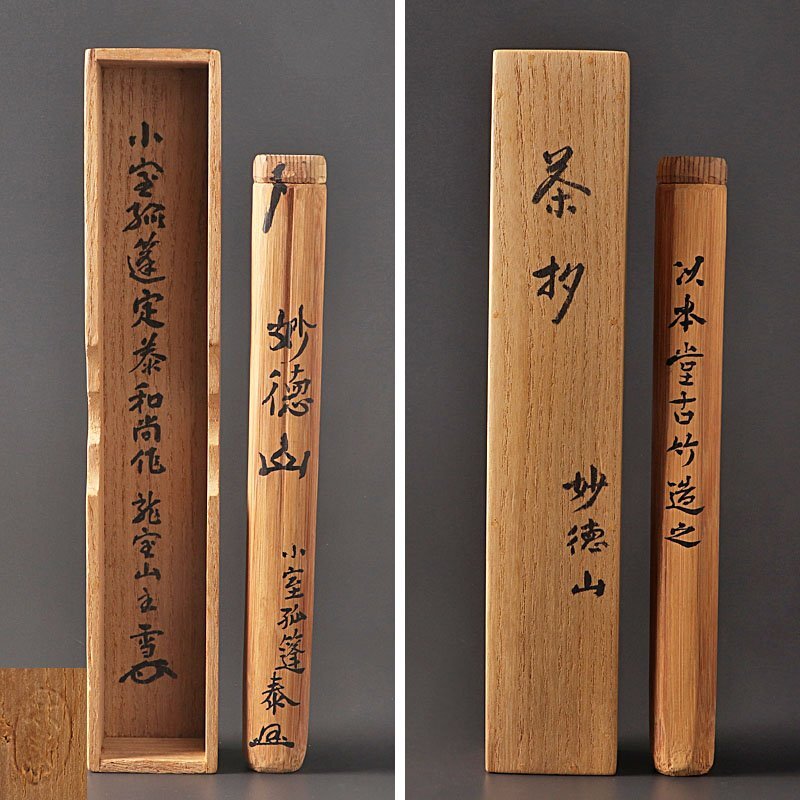 小室孤篷定泰和尚作 龍宝山主 雪
妙徳山
小室孤篷泰
茶杓
妙徳山
以本堂古竹造之